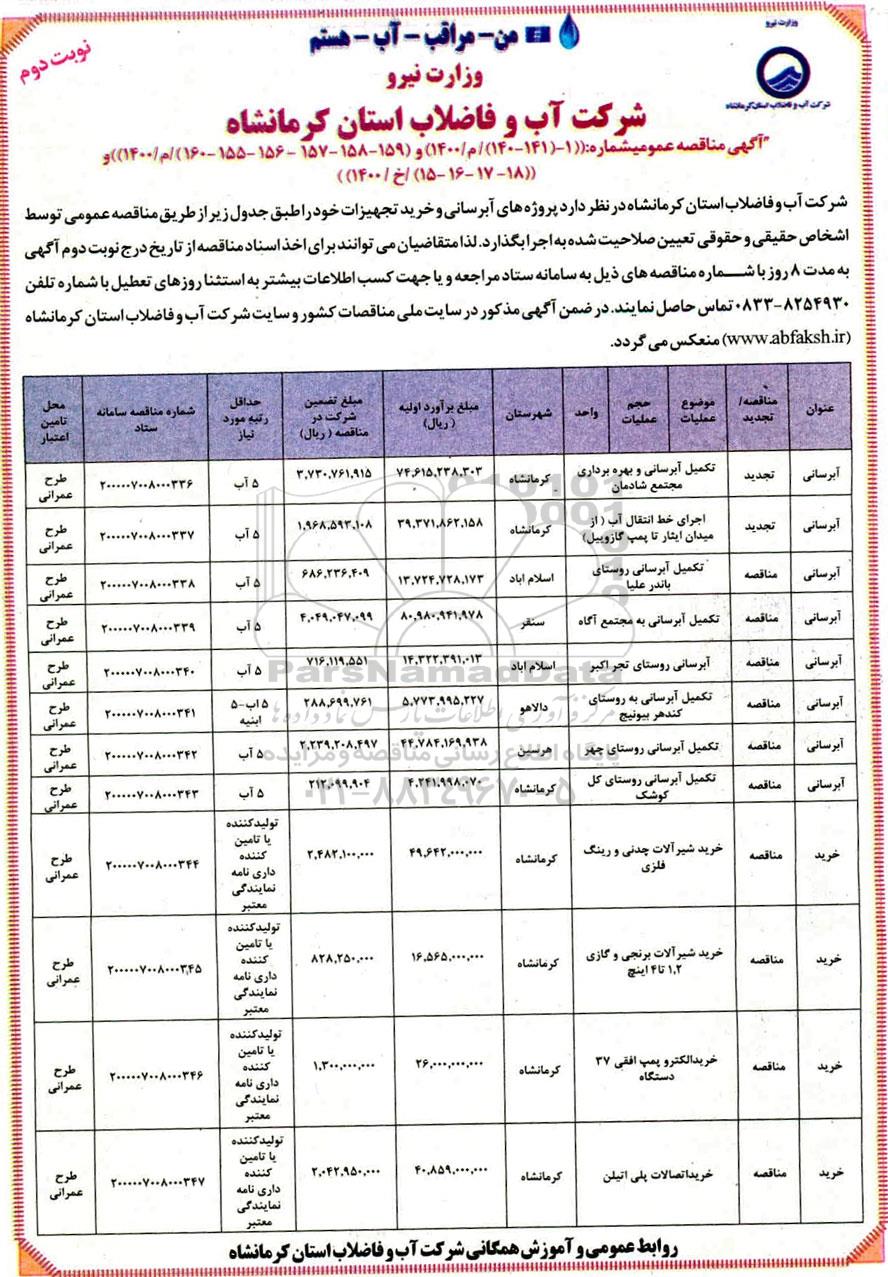 وزارت نیرو
شرکت آب و فاضلاب استان کرمانشاه
نوبت دوم
من - مراقب - آب - هستم
وزارت نیرو
شرکت آب و فاضلاب استان کرمانشاه
"آگهی مناقصه عمومیشماره:((۱-(۱۴۱-۱۴۰)/م/۱۴۰۰) و (۱۵۹-۱۵۸-۱۵۷ - ۱۵۶ -۱۵۵ -۱۶۰)/م/۱۴۰۰))و
((۱۸- ۱۷ -۱۶ -۱۵) /خ /۱۴۰۰))
شرکت آب و فاضلاب استان کرمانشاه در نظر دارد پروژه های آبرسانی و خرید تجهیزات خود را طبق جدول زیر از طریق مناقصه عمومی توسط
اشخاص حقیقی و حقوقی تعیین صلاحیت شده به اجرا بگذارد. لذا متقاضیان می توانند برای اخذ اسناد مناقصه از تاریخ درج نوبت دوم آگهی
به مدت ۸ روز با شماره مناقصه های ذیل به سامانه ستاد مراجعه و یا جهت کسب اطلاعات بیشتر به استثنا روزهای تعطیل با شماره تلفن
۰۸۳۳-۸۲۵۴۹۳۰ تماس حاصل نمایند. در ضمن آگهی مذکور در سایت ملی مناقصات کشور و سایت شرکت آب و فاضلاب استان کرمانشاه
(www.abfaksh.ir) منعکس می گردد.
عنوان مناقصه/تجدید موضوع عملیات حجم عملیات واحد شهرستان مبلغ برآورد اولیه (ریال) مبلغ تضمین شرکت در مناقصه (ریال) حداقل رتبه مورد نیاز شماره مناقصه سامانه ستاد محل تامین اعتبار
آبرسانی تجدید تکمیل آبرسانی و بهره برداری مجتمع شادمان کرمانشاه ۷۴,۶۱۵,۲۳۸,۳۰۳ ۳,۷۳۰,۷۶۱,۹۱۵ ۵ آب ۲۰۰۰۰۰۷۰۰۸۰۰۰۳۳۶ طرح عمرانی
آبرسانی تجدید اجرای خط انتقال آب ( از میدان ایثار تا پمپ گازوییل) کرمانشاه ۳۹,۳۷۱,۸۶۲,۱۵۸ ۱,۹۶۸,۵۹۳,۱۰۸ ۵ آب ۲۰۰۰۰۰۷۰۰۸۰۰۰۳۳۷ طرح عمرانی
آبرسانی مناقصه تکمیل آبرسانی روستای باندر علیا اسلام اباد ۱۳,۷۲۴,۷۲۸,۱۷۳ ۶۸۶,۲۳۶,۴۰۹ ۵ آب ۲۰۰۰۰۰۷۰۰۸۰۰۰۳۳۸ طرح عمرانی
آبرسانی مناقصه تکمیل آبرسانی به مجتمع آگاه سنقر ۸۰,۹۸۰,۹۴۱,۹۷۸ ۴,۰۴۹,۰۴۷,۰۹۹ ۵ آب ۲۰۰۰۰۰۷۰۰۸۰۰۰۳۳۹ طرح عمرانی
آبرسانی مناقصه آبرسانی روستای تجر اکبر اسلام اباد ۱۴,۳۲۲,۳۹۱,۰۱۳ ۷۱۶,۱۱۹,۵۵۱ ۵ آب ۲۰۰۰۰۰۷۰۰۸۰۰۰۳۴۰ طرح عمرانی
آبرسانی مناقصه تکمیل آبرسانی به روستای کندهر بیونیج دالاهو ۵,۷۷۳,۹۹۵,۲۲۷ ۲۸۸,۶۹۹,۷۶۱ ۵ اب-۵ ابنیه ۲۰۰۰۰۰۷۰۰۸۰۰۰۳۴۱ طرح عمرانی
آبرسانی مناقصه تکمیل آبرسانی روستای چهر هرسین ۴۴,۷۸۴,۱۶۹,۹۳۸ ۲,۲۳۹,۲۰۸,۴۹۷ ۵ آب ۲۰۰۰۰۰۷۰۰۸۰۰۰۳۴۲ طرح عمرانی
آبرسانی مناقصه تکمیل آبرسانی روستای کل کوشک کرمانشاه ۴,۲۴۱,۹۹۸,۰۷۰ ۲۱۲,۰۹۹,۹۰۴ ۵ آب ۲۰۰۰۰۰۷۰۰۸۰۰۰۳۴۳ طرح عمرانی
خرید مناقصه خرید شیرآلات چدنی و رینگ فلزی کرمانشاه ۴۹,۶۴۲,۰۰۰,۰۰۰ ۲,۴۸۲,۱۰۰,۰۰۰ تولیدکننده یا تامین کننده داری نامه نمایندگی معتبر ۲۰۰۰۰۰۷۰۰۸۰۰۰۳۴۴ طرح عمرانی
خرید مناقصه خرید شیرآلات برنجی و گازی ۱,۲ تا۴ اینچ کرمانشاه ۱۶,۵۶۵,۰۰۰,۰۰۰ ۸۲۸,۲۵۰,۰۰۰ تولیدکننده یا تامین کننده داری نامه نمایندگی معتبر ۲۰۰۰۰۰۷۰۰۸۰۰۰۳۴۵ طرح عمرانی
خرید مناقصه خریدالکترو پمپ افقی ۳۷ دستگاه کرمانشاه ۲۶,۰۰۰,۰۰۰,۰۰۰ ۱,۳۰۰,۰۰۰,۰۰۰ تولیدکننده یا تامین کننده داری نامه نمایندگی معتبر ۲۰۰۰۰۰۷۰۰۸۰۰۰۳۴۶ طرح عمرانی
خرید مناقصه خریداتصالات پلی اتیلن کرمانشاه ۴۰,۸۵۹,۰۰۰,۰۰۰ ۲,۰۴۲,۹۵۰,۰۰۰ تولیدکننده یا تامین کننده داری نامه نمایندگی معتبر ۲۰۰۰۰۰۷۰۰۸۰۰۰۳۴۷ طرح عمرانی
ParsNamadData
مرکز فرآوری اطلاعات پارس نماد داده ها
پایگاه اطلاع رسانی مناقصه و مزایده
۰۲۱-۸۸۳۴۹۶۷۰-۵
روابط عمومی و آموزش همگانی شرکت آب و فاضلاب استان کرمانشاه